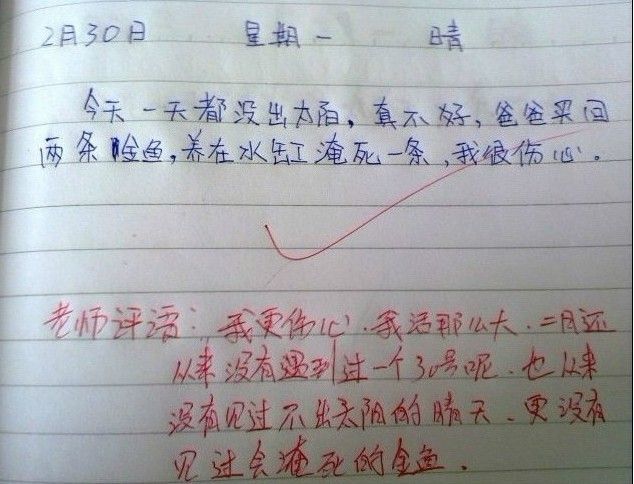 2月30日 星期一 晴
今天一天都没出太阳，真不好，爸爸买回
两条金鱼，养在水缸淹死一条，我很伤心。
老师评语：我更伤心，我活那么大，二月还
从来没有遇到过一个30号呢，也从来
没有见过不出太阳的晴天，更没有
见过会淹死的金鱼．